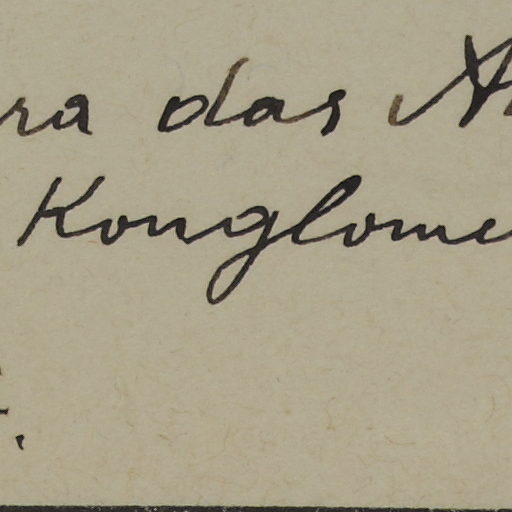 ra das A
Konglome